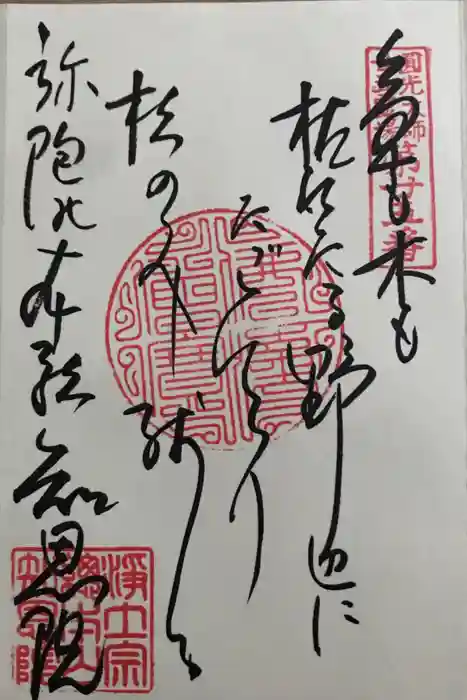 圓光大師
第廿五番
草も木も
枯れたる野辺に
たゞひとり
松のみ残る
弥陀の本願 知恩院
淨土宗
總本山
知恩院